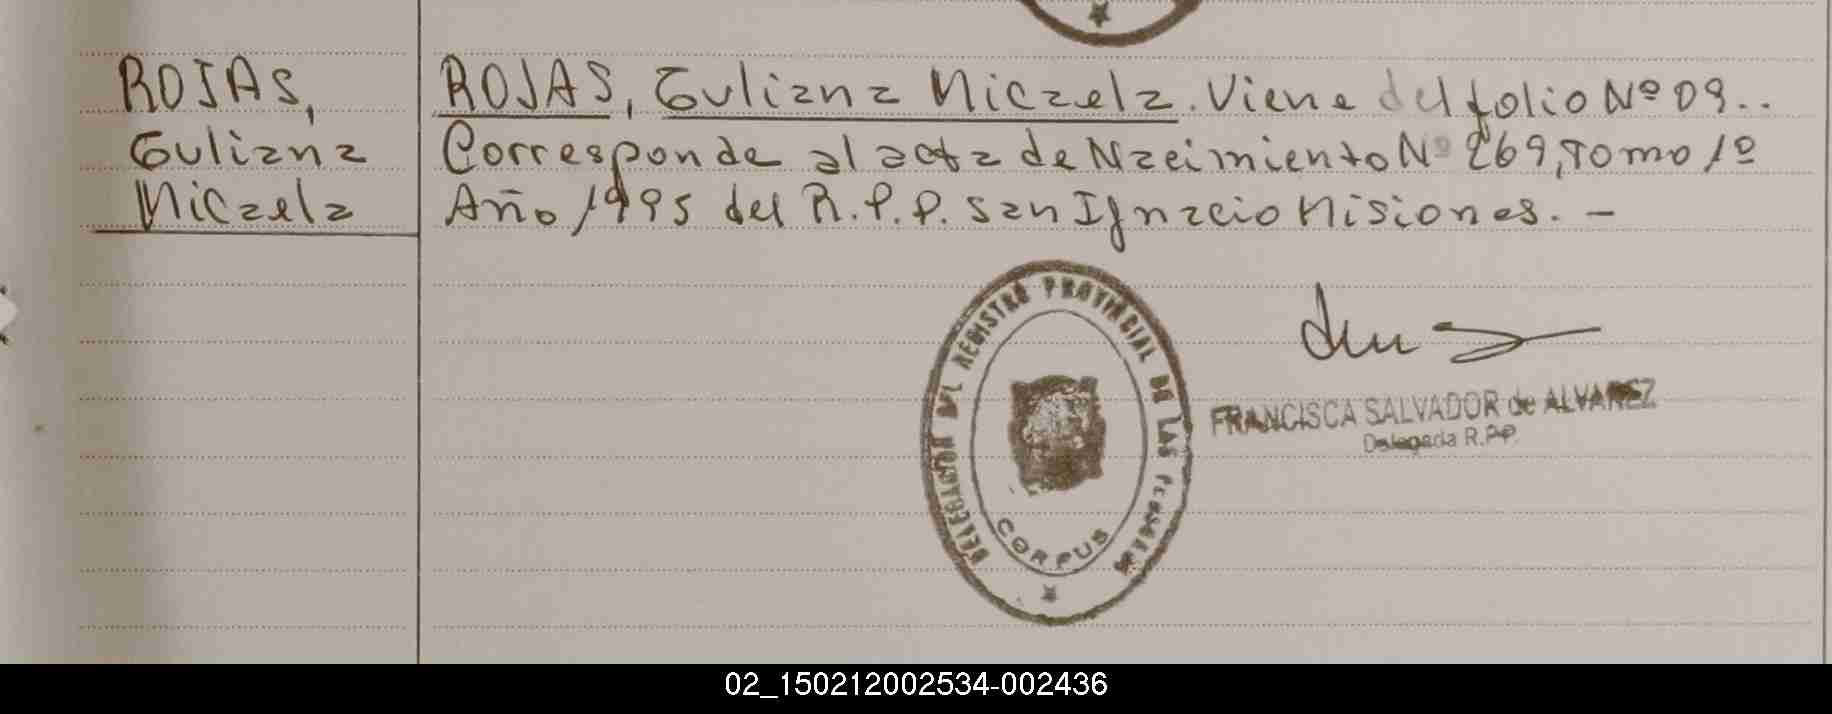 ROJAS,
Guliana
Micaela
ROJAS, Guliana Micaela. Viene del folio Nº 09..
Corresponde al acta de Nacimiento Nº 269, Tomo 1º
Año 1995 del R.P.P. San Ignacio Misiones. -
DELEGACION DEL REGISTRO PROVINCIAL DE LAS PERSONAS
CORPUS
FRANCISCA SALVADOR de ALVAREZ
Delegada R.P.P.
02_150212002534-002436